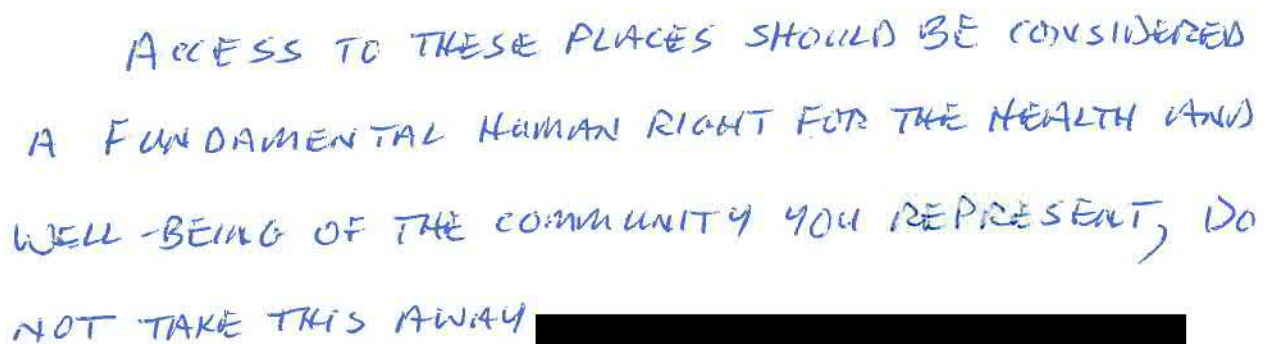 ACCESS TO THESE PLACES SHOULD BE CONSIDERED
A FUNDAMENTAL HUMAN RIGHT FOR THE HEALTH AND
WELL-BEING OF THE COMMUNITY YOU REPRESENT, DO
NOT TAKE THIS AWAY